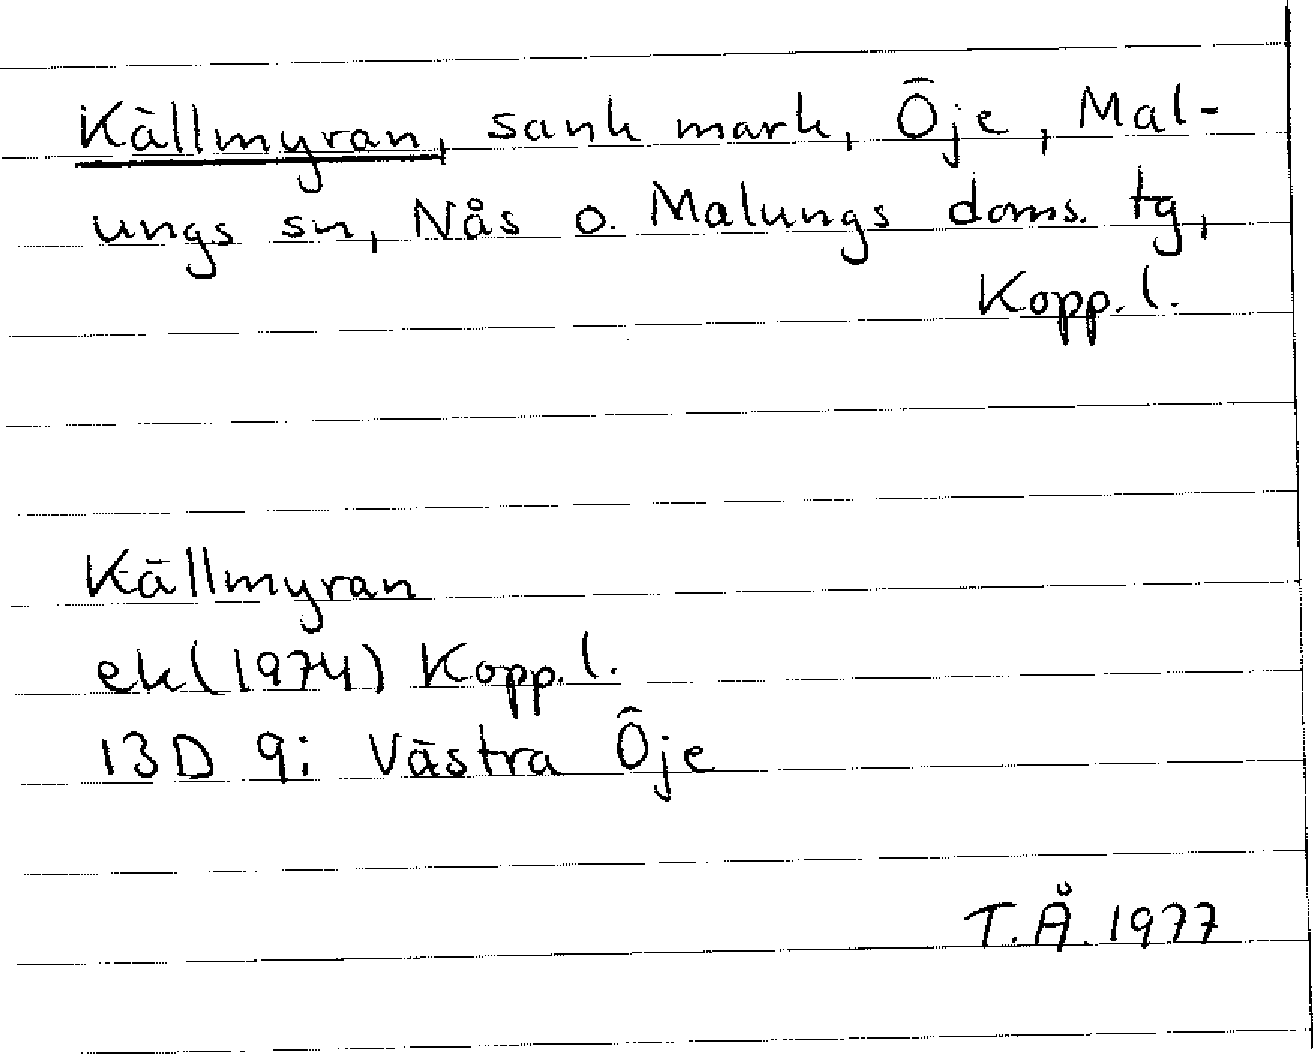 Källmyran, sank mark, Öje, Mal-
ungs sn, Nås o. Malungs doms. tg,
Kopp. l.
Källmyran
ek (1974) Kopp. l.
13D 9i Västra Öje
T.Å. 1977